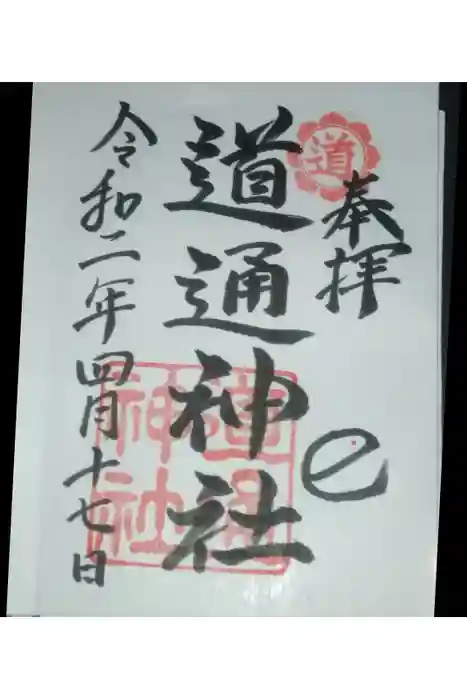 奉拝
道
道通神社
道通
神社
令和二年四月十七日